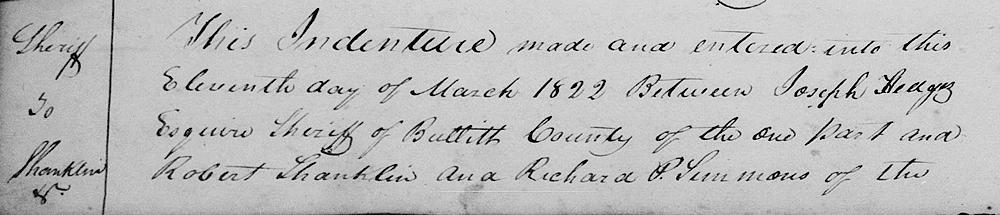 Sheriff
To
Shanklin
&c.
This Indenture made and entered into this
Eleventh day of March 1822 Between Joseph Hedges
Esquire Sheriff of Bullitt County of the one part and
Robert Shanklin and Richard P. Simmons of the